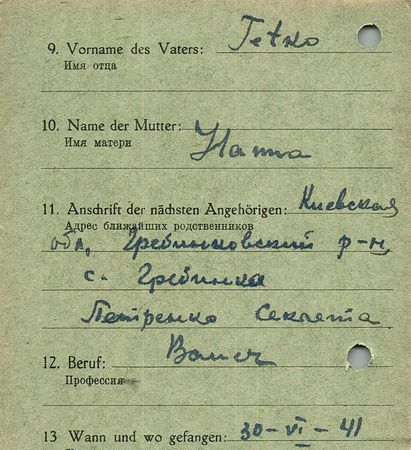 9. Vorname des Vaters: Petro
Имя отца
10. Name der Mutter:
Имя матери Hanna
11. Anschrift der nächsten Angehörigen: Киевская
Адрес ближайших родственников
обл, Гребинковский р-н,
с. Гребинка
Петренко Секлета
12. Beruf: Bauer
Профессия
13 Wann und wo gefangen: 30-VI-41